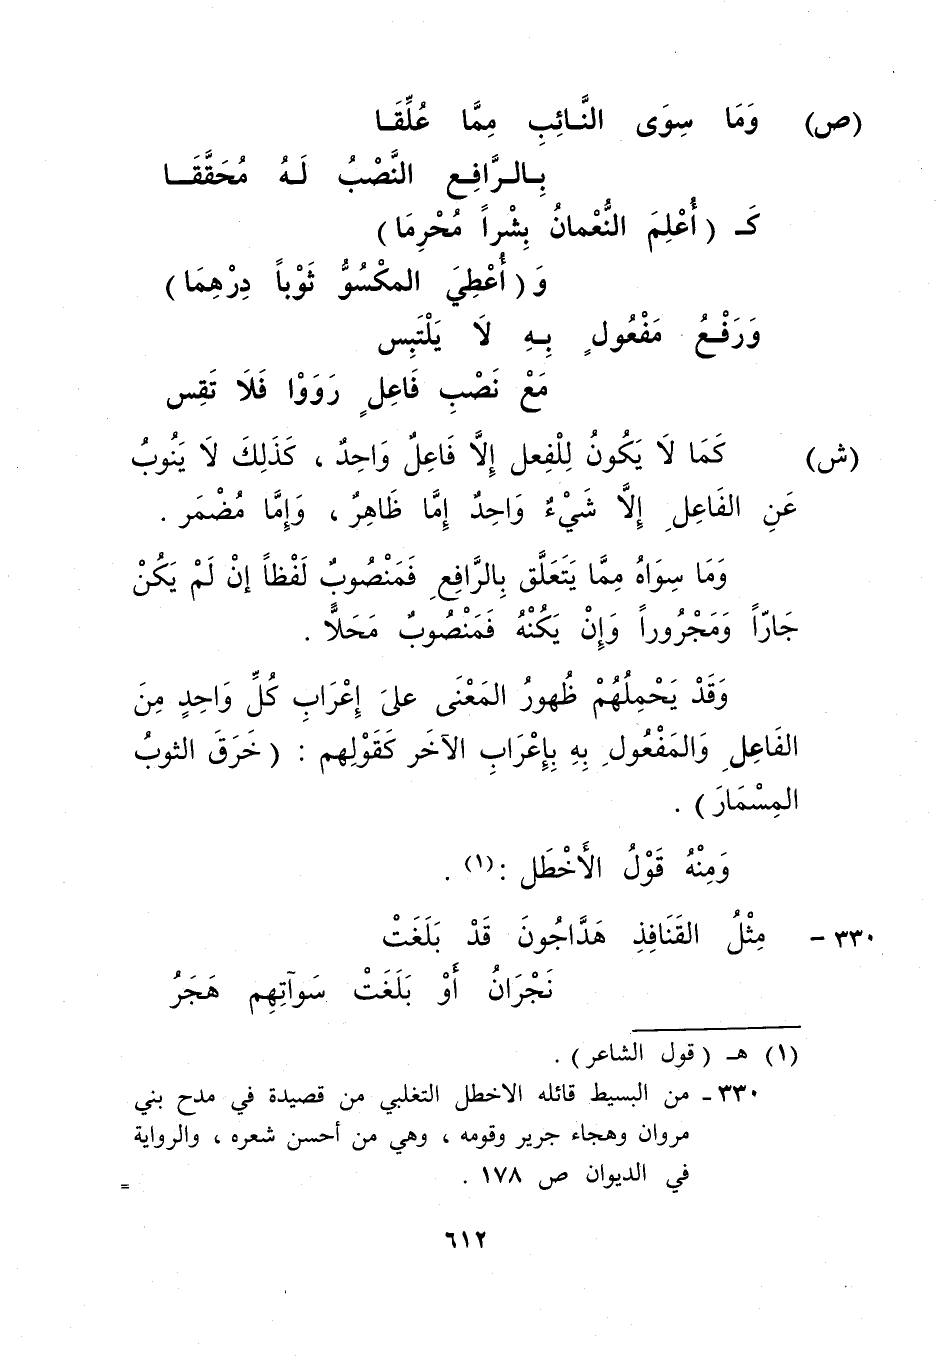 (ص) وَمَا سِوَى النَّائِبِ مِمَّا عُلِّقَا
بِالرَّافِعِ النَّصْبُ لَهُ مُحَقَّقَا
كَـ (أُعْلِمَ النُّعْمانُ بِشْراً مُحْرِمَا)
وَ (أُعْطِيَ المكْسُوُّ ثَوْباً دِرْهِمَا)
وَرَفْعُ مَفْعُولٍ بِهِ لَا يَلْتَبِس
مَعْ نَصْبِ فَاعِلٍ رَوَوْا فَلَا تَقِس
(ش) كَمَا لَا يَكُونُ لِلْفِعل إِلَّا فَاعِلٌ وَاحِدٌ ، كَذَلِكَ لَا يَنُوبُ
عَنِ الفَاعِلِ إِلَّا شَيْءٌ وَاحِدٌ إِمَّا ظَاهِرٌ ، وَإِمَّا مُضْمَر .
وَمَا سِوَاهُ مِمَّا يَتَعَلَّق بِالرَّافِعِ فَمَنْصُوبٌ لَفْظاً إنْ لَمْ يَكُنْ
جَارّاً وَمَجْرُوراً وَإِنْ يَكُنْهُ فَمَنْصُوبٌ مَحَلاًّ .
وَقَدْ يَحْمِلُهُمْ ظُهورُ المَعْنَى علىَ إِعْرَابِ كُلِّ وَاحِدٍ مِنَ
الفَاعِلِ وَالمَفْعُولِ بِهِ بِإِعْرَابِ الآخَر كَقَوْلِهم : (خَرَقَ الثوبُ
المِسْمَارَ) .
وَمِنْهُ قَوْلُ الأَخْطَل :(١) .
٣٣٠ - مِثْلُ القَنَافِذِ هَدَّاجُونَ قَدْ بَلَغَتْ
نَجْرَانُ أَوْ بَلَغَتْ سَوآتِهِم هَجَرُ
(١) هـ (قول الشاعر) .
٣٣٠ ـ من البسيط قائله الاخطل التغلبي من قصيدة في مدح بني
مروان وهجاء جرير وقومه ، وهي من أحسن شعره ، والرواية
في الديوان ص ١٧٨ .
=
٦١٢